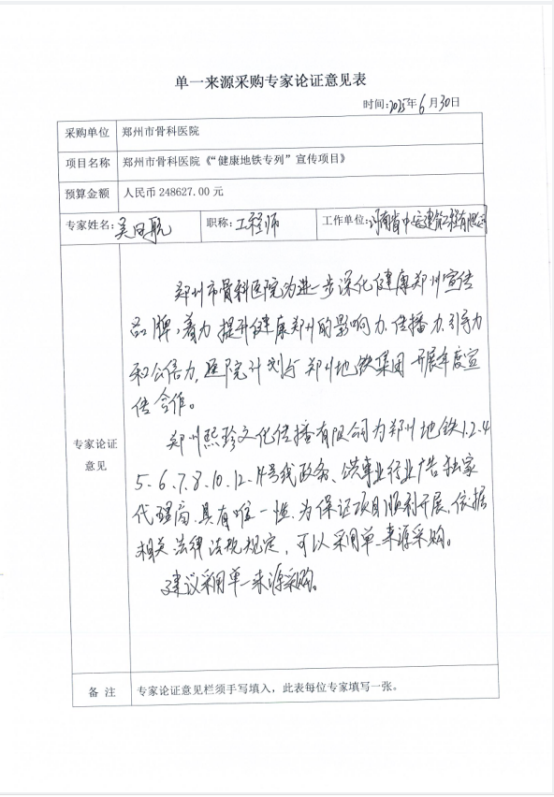 单一来源采购专家论证意见表
时间:2025年6月30日
采购单位 郑州市骨科医院
项目名称 郑州市骨科医院《“健康地铁专列”宣传项目》
预算金额 人民币 248627.00 元
专家姓名: 吴 职称: 工程师 工作单位: 河南省中 建 工程有限公司
专家论证
意见
郑州市骨科医院为进一步深化健康郑州宣传
品牌,着力提升健康郑州的影响力.传播力.引导力
和公信力,医院计划与郑州地铁集团开展年度宣
传合作。
郑州熙珍文化传播有限公司为郑州地铁1.2.4
5.6.7.8.10.12.14号线政务、 事业行业广告独家
代理商.具有唯一性.为保证项目顺利开展,依据
相关法律法规规定,可以采用单一来源采购。
建议采用单一来源采购。
备 注 专家论证意见栏须手写填入,此表每位专家填写一张。